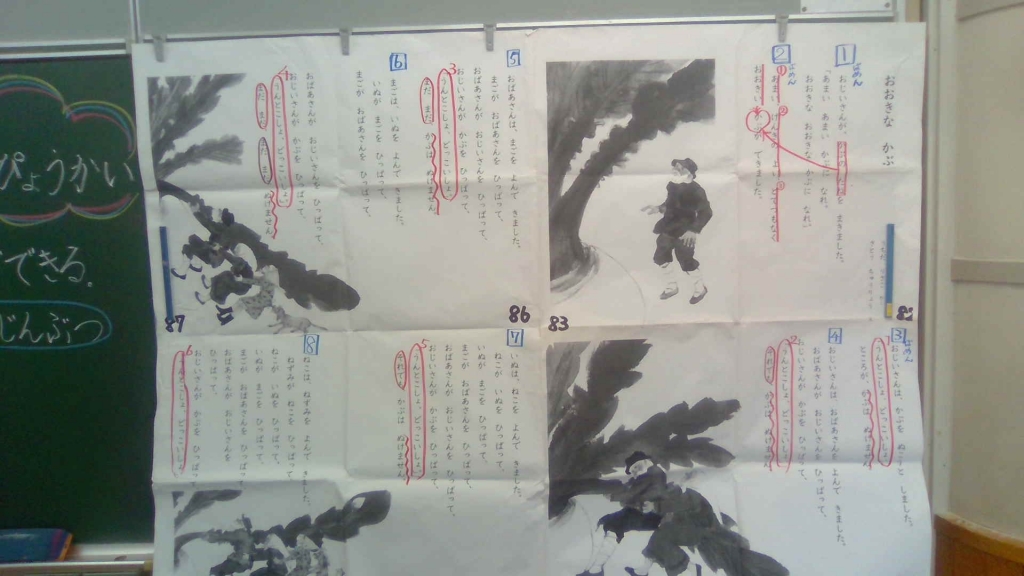 おおきな かぶ
1
ばめん
おじいさんが、
を まきました。
「あまい あまい かぶに なれ。
おおきな おおきな かぶに なれ。」
2
ばめん
あまい げんきの よい
おおきい
できました。
82
83
3
ばめん
おじいさんは、かぶを ぬこうと しました。
「うんとこしょ、どっこいしょ。」
ところが、かぶは ぬけません。
4
おじいさんは、おばあさんを よんで きました。
おばあさんが おじいさんを ひっぱって、
おじいさんが かぶを ひっぱって、
2
「うんとこしょ、どっこいしょ。」
それでも、かぶは ぬけません。
5
おばあさんは、まごを よんで きました。
まごが おばあさんを ひっぱって、
おばあさんが おじいさんを ひっぱって、
おじいさんが かぶを ひっぱって、
3
「うんとこしょ、どっこいしょ。」
まだ まだ、かぶは ぬけません。
6
まごは、いぬを よんで きました。
いぬが まごを ひっぱって、
まごが おばあさんを ひっぱって、
86
おばあさんが おじいさんを ひっぱって、
おじいさんが かぶを ひっぱって、
4
「うんとこしょ、どっこいしょ。」
ぬけません。
87
7
いぬは、ねこを よんで きました。
ねこが いぬを ひっぱって、
いぬが まごを ひっぱって、
まごが おばあさんを ひっぱって、
おばあさんが おじいさんを ひっぱって、
おじいさんが かぶを ひっぱって、
5
「うんとこしょ、どっこいしょ。」
それでも、かぶは ぬけません。
8
ねこは、ねずみを よんで きました。
ねずみが ねこを ひっぱって、
ねこが いぬを ひっぱって、
いぬが まごを ひっぱって、
まごが おばあさんを ひっぱって、
おばあさんが おじいさんを ひっぱって、
おじいさんが かぶを ひっぱって、
6
「うんとこしょ、どっこいしょ。」
ぴょうかい
できる.
じんぶつ